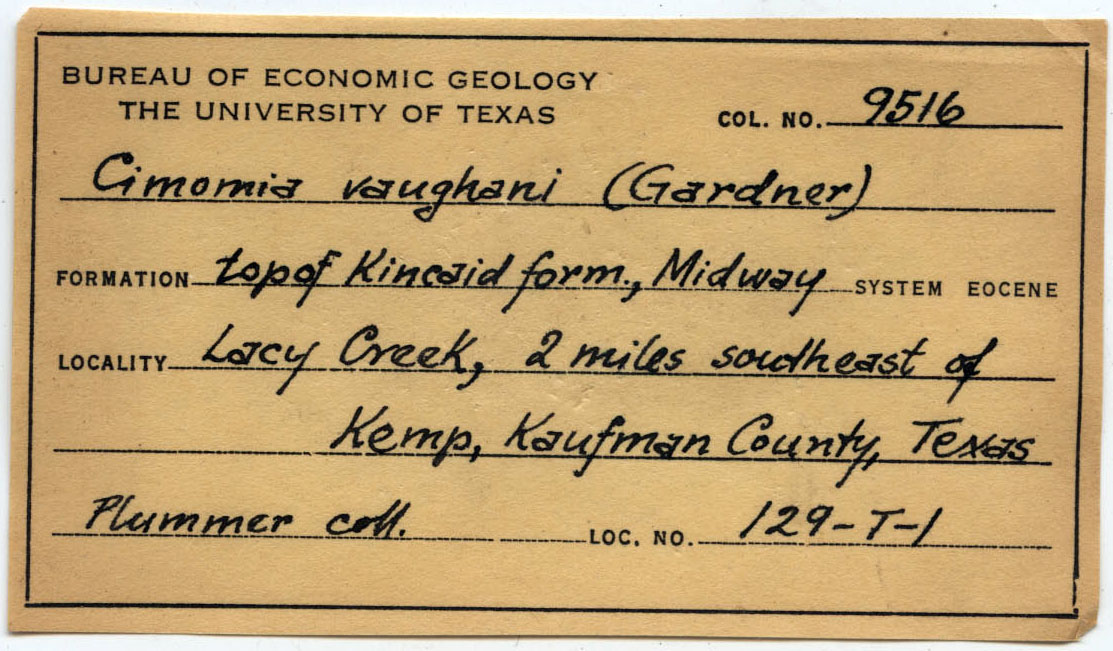 BUREAU OF ECONOMIC GEOLOGY
THE UNIVERSITY OF TEXAS
COL. NO. 9516
Cimomia vaughani (Gardner)
FORMATION top of Kincaid form., Midway SYSTEM EOCENE
LOCALITY Lacy Creek, 2 miles southeast of
Kemp, Kaufman County, Texas
Plummer coll. LOC. NO. 129-T-1